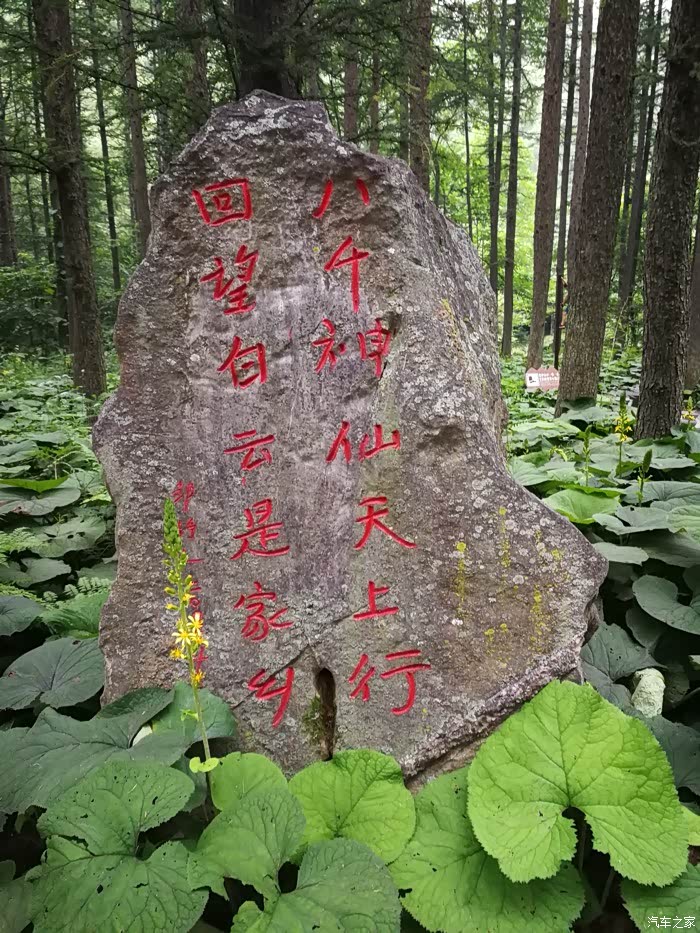 八千神仙天上行
回望白云是家乡
汽车之家